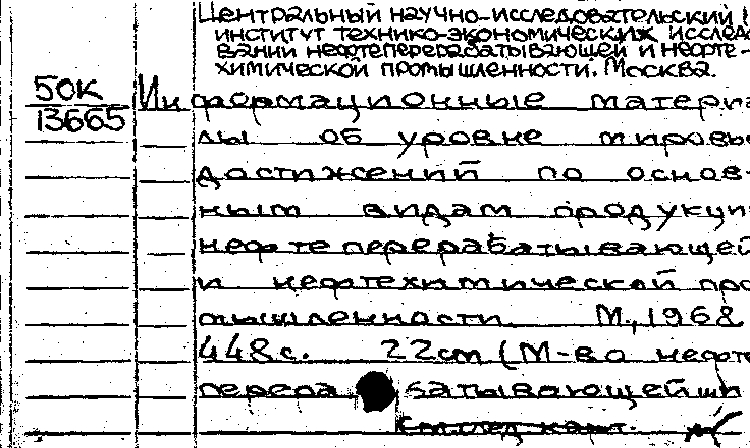 Центральный научно-исследовательский
институт технико-экономических исследо
ваний нефтеперерабатывающей и нефте-
химической промышленности. Москва.
50К
13665
Информационные материа
лы об уровне мировы
достижений по основ-
ным видам продукци
нефтеперерабатывающей
и нефтехимической про
мышленности М., 1968
448с. 22см (М-во нефте
перерабатывающей и
См. след. карт.